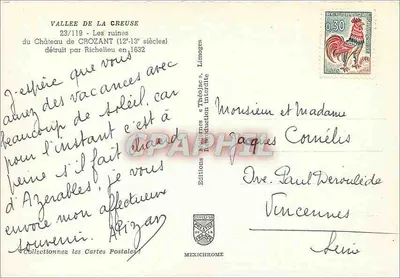 VALLEE DE LA CREUSE
23/119 - Les ruines
du Château de CROZANT (12e-13e siècles)
détruit par Richelieu en 1632
J'espère que vous
aurez des vacances avec
beaucoup de soleil, car
pour l'instant c'est à
peine s'il fait chaud
d'Azerables, je vous
envoie mon affectueux
souvenir.
"Collectionnez les Cartes Postales"
Editions d'Art "Théojac", Limoges
Reproduction interdite
MEXICHROME
0,30
Monsieur et Madame
Jacques Cornélis
Ave. Paul Deroulède
Vincennes
Seine
CARTE-POSTALE